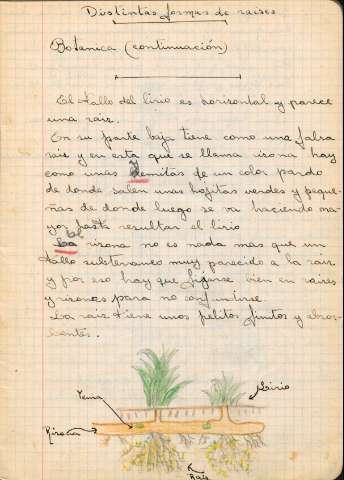 Distintas formas de raices
Botanica (continuación)
El tallo del lirio es horisontal y parece
una raiz.
En su parte baja tiene como una falsa
rais y en esta que se llama risona hay
como unas yemitas de un color pardo
de donde salen unas hojitas verdes y peque-
ñas de donde luego se va haciendo ma-
yor hasta resultar el lirio
La risona no es nada mas que un
tallo subterraneo muy parecido a la raiz
y por eso hay que fijarse bien en raices
y risonas para no confundirse.
La raiz tiene unos pelitos finitos y absor-
bentes.
Yema
Lirio
Risona
Rais